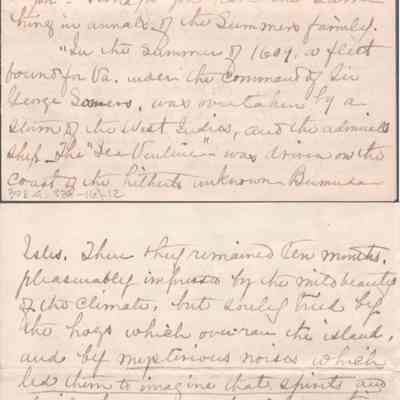 thing in annals of the Summers family.
"In the summer of 1609, a fleet
bound for Va. under the command of Sir
George Somers, was overtaken by a
storm of the West Indies, and the admirals
ship - The "Sea Venture" - was driven on the
coast of the hitherto unknown Bermuda
Isles. There they remained ten months,
pleasurably impressed by the mild beauty
of the climate, but sorely tried by
the hogs which overran the island,
and by mysterious noises which
led them to imagine that spirits and